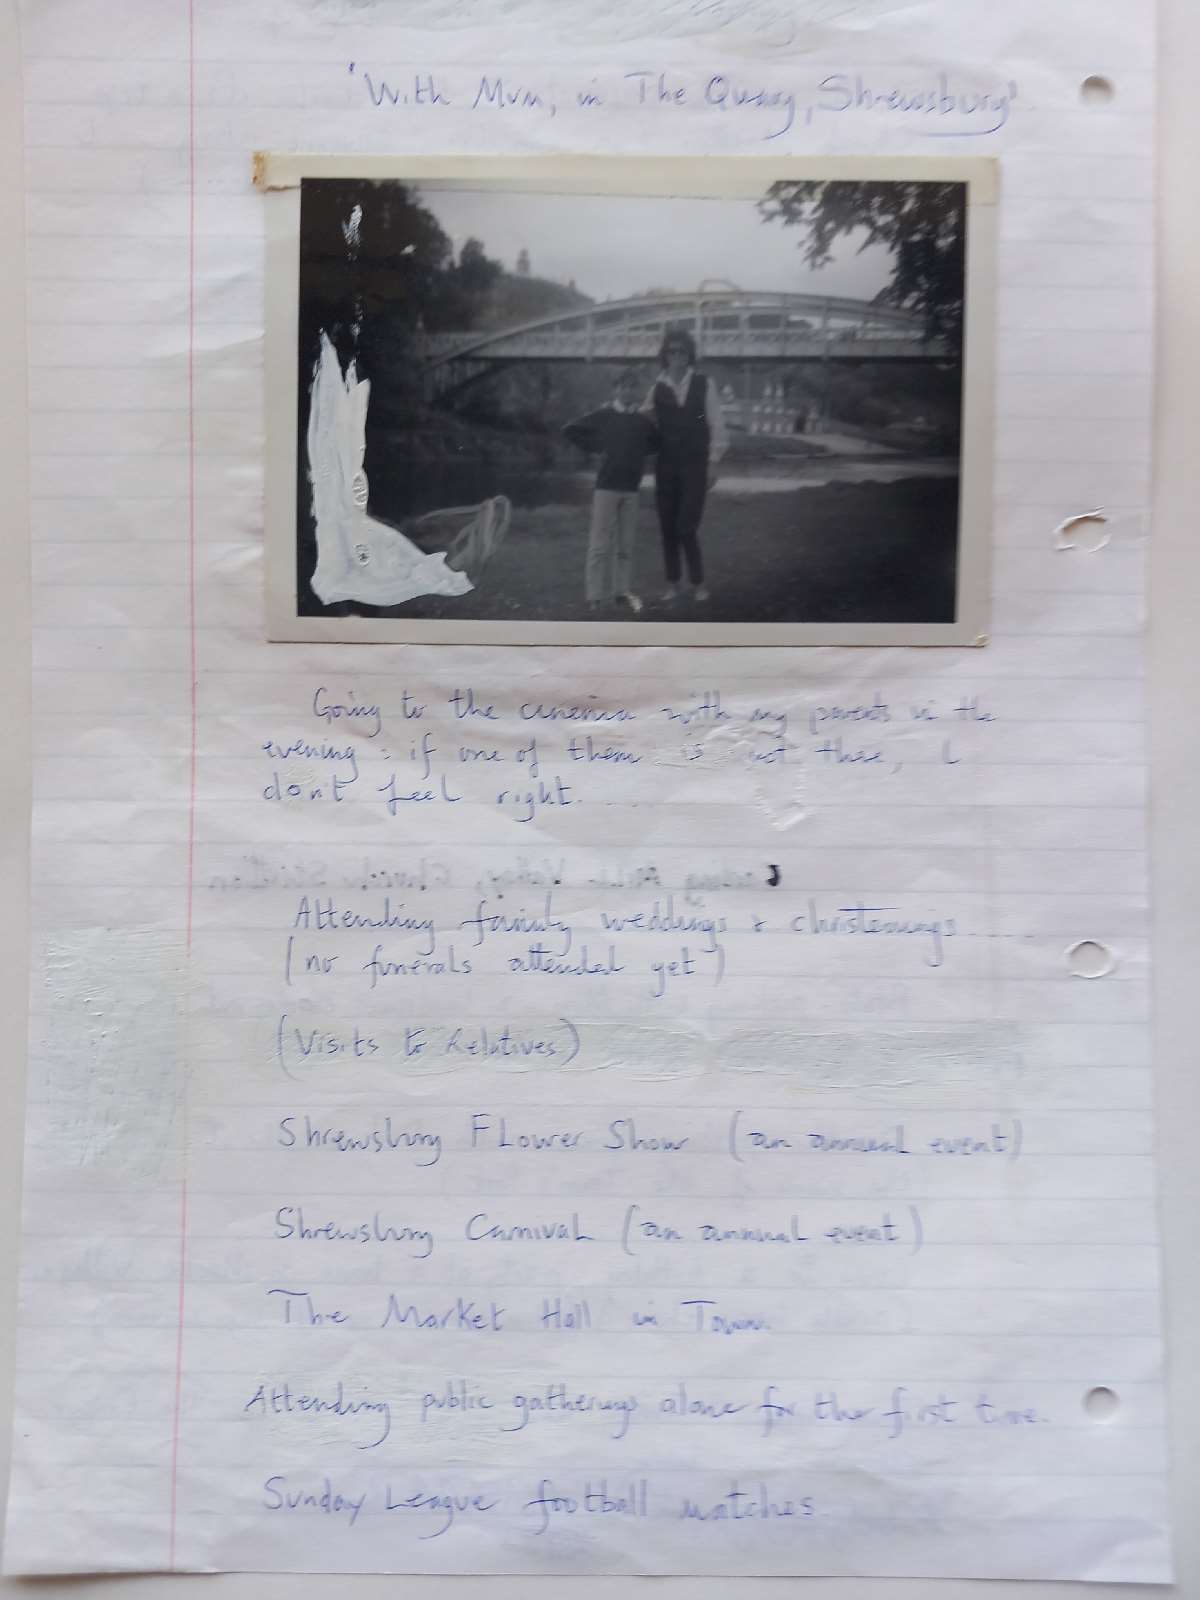 'With Mum, in The Quarry, Shrewsbury'.
Going to the cinema with my parents in the
evening: if one of them is not there, I
don't feel right.....
Attending family weddings & christenings.....
(no funerals attended yet)
(Visits to Relatives)
Shrewsbury Flower Show (an annual event)
Shrewsbury Carnival (an annual event)
The Market Hall in Town.
Attending public gatherings alone for the first time.
Sunday League football matches.